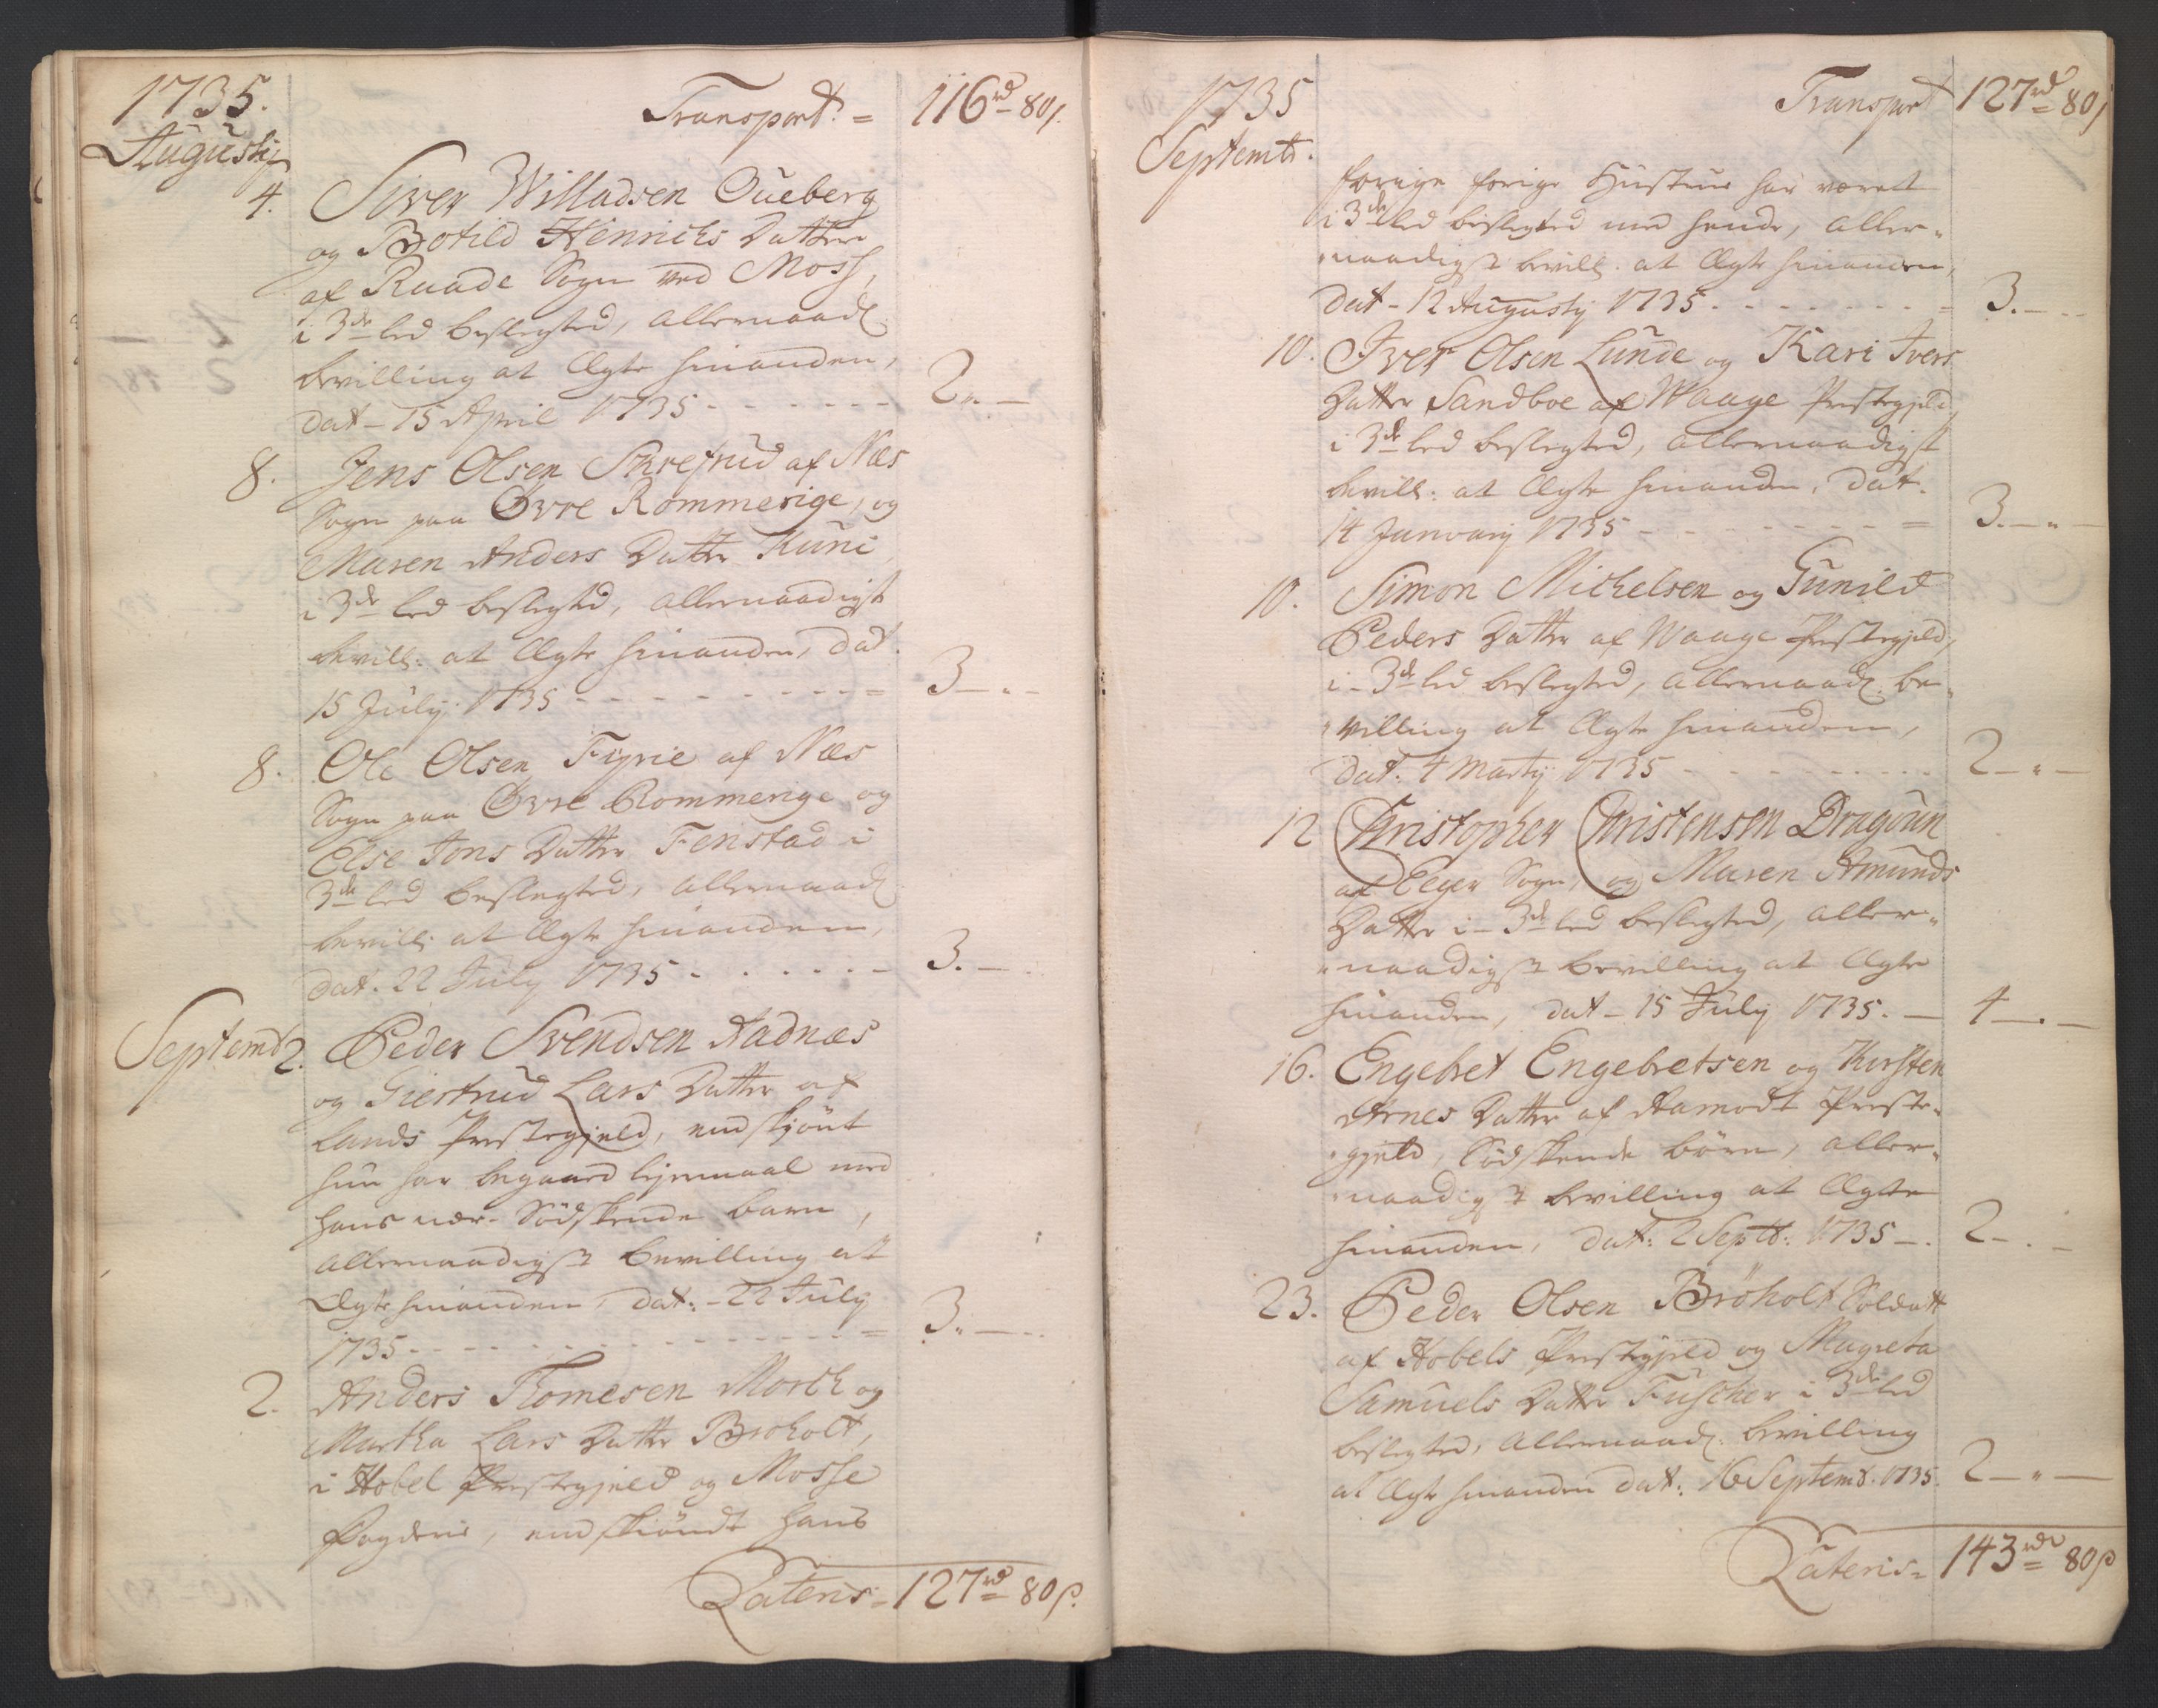 1735.
Transport. = 116 rd - 80 s.
Augustij
4. Siver Willadsen Oueberg
og Botild Henrichs Datter
af Raade Sogn ved Moss,
i 3de led beslegted, allernaad:
bevilling at Ægte hinanden,
dat - 15 April 1735 - - - - - - 2 " —
8. Jens Olsen Skrefrud af Næs
Sogn paa Øvre Rommerige, og
Maren Anders Datter Kuni
i 3de led beslegted, allernaadigst
bevill: at Ægte hinanden, dat.
15 July 1735 - - - - - - - = 3 — " —
8. Ole Olsen Fyrie af Næs
Sogn paa Øvre Rommerige og
Else Jons Datter Fenstad i
3de led beslegted, allernaad:
bevill: at Ægte hinanden,
dat. 22 July 1735 - - - - - - 3. —
Septemb 2. Peder Svendsen Aadnæs
og Giertrud Lars Datter af
Lands Prestegjeld, endskjönt
hun har begaaed lejermaal med
hans nær-Södskende barn,
allernaadigst bevilling at
Ægte hinanden, dat: - 22 July
1735 - - - - - - - - - = 3 " —
2. Anders Thomesen Morck og
Martha Lars Datter Broholt,
i Hobel Prestegjeld og Mosse
Fogderie, endskiöndt hans
Lateris = 127 rd = 80 s.
1735
Transport 127 rd = 80 s
Septemb.
forige forige Hustrue har været
i 3de led beslegted med hende, aller-
naadigst bevill. at Ægte hinanden,
dat - 12 Augustij 1735 - - - - - - = 3. —
10. Iver Olsen Lunde og Kari Ivers
Datter Sandboe af Waage Prestegjeld,
i 3de led beslegted, allernaadigst
bevill: at Ægte hinanden, dat.
14 Januarij 1735 - - - - - - = 3. — " —
10. Simon Michelsen og Gunild
Peders Datter af Waage Prestegjeld,
i - 3de led beslegted, allernaad: be-
villing at Ægte hinanden,
dat. 4 Martij 1735 - - - - - - 2 — " —
12 Christopher Christensen Dragoun
af Eger Sogn, og Maren Amunds
Datter i - 3de led beslegted, aller-
naadigst bevilling at Ægte
hinanden, dat - 15 July 1735. — 4 — . —
16. Engebret Engebretsen og Kirsten
Arnes Datter af Aamodt Preste-
gjeld, Södskende börn, aller-
naadigst bevilling at Ægte
hinanden, dat: 2 Septb: 1735 - . 2 — . —
23. Peder Olsen Bröholt Soldatt
af Hobels Prestegjeld og Magreta
Samuels Datter Fuscher i 3de led
beslegted, allernaad: bevilling
at Ægte hinanden dat: 16 Septemb. 1735. 2 — " —
Lateris = 143 rd = 80 s